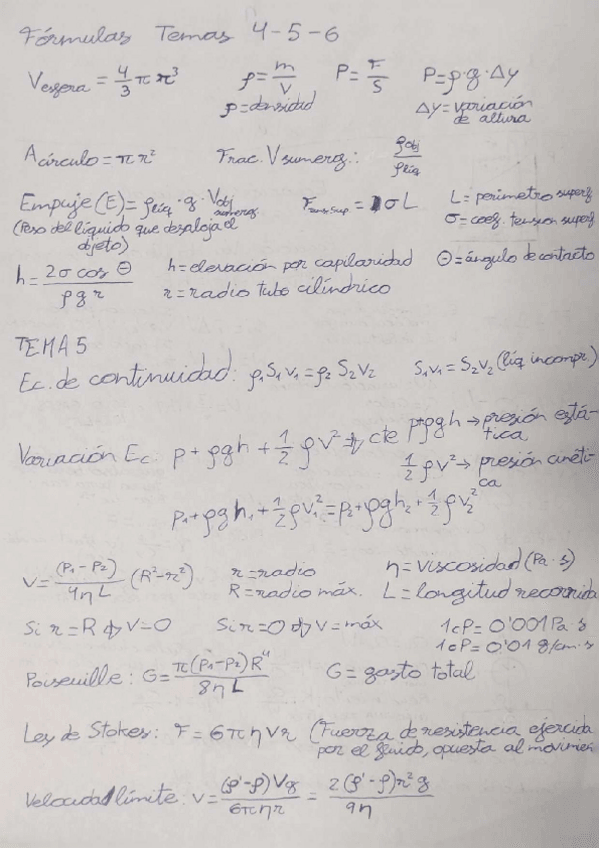 Fórmulas Temas 4-5-6
Vesfera = 4/3 π r³   ρ = m/V   P = F/S   P = ρ·g·Δy
ρ = densidad   Δy = variación de altura
Acírculo = π r²   Frac. V sumerg.: ρobj/ρliq
Empuje (E) = ρliq · g · Vobj sumerg.   Ftens.sup = σ L   L = perimetro superf
(Peso del líquido que desaloja el objeto)   σ = coef. tension superf
h = 2σ cos Θ / ρ g r   h = elevación por capilaridad   Θ = ángulo de contacto
r = radio tubo cilíndrico
TEMA 5
Ec. de continuidad: ρ₁S₁v₁ = ρ₂ S₂v₂   S₁v₁ = S₂v₂ (líq incompr.)
Variación Ec. p + ρgh + 1/2 ρv² → cte   p+ρgh → presión estática
1/2 ρv² → presión cinética
p₁ + ρgh₁ + 1/2 ρv₁² = p₂ + ρgh₂ + 1/2 ρv₂²
v = (p₁ - p₂)/4ηL (R² - r²)   r = radio   η = viscosidad (Pa·s)
R = radio máx.   L = longitud recorrida
Si r = R → v = 0   Si r = 0 → v = máx   1cP = 0'001 Pa·s
1cP = 0'01 g/cm·s
Poiseuille: G = π(p₁-p₂)R⁴ / 8ηL   G = gasto total
Ley de Stokes: F = 6πηvr (Fuerza de resistencia ejercida
por el fluido, opuesta al movimien
Velocidad límite: v = (ρ'-ρ)Vg / 6πηr = 2(ρ'-ρ)r²g / 9η